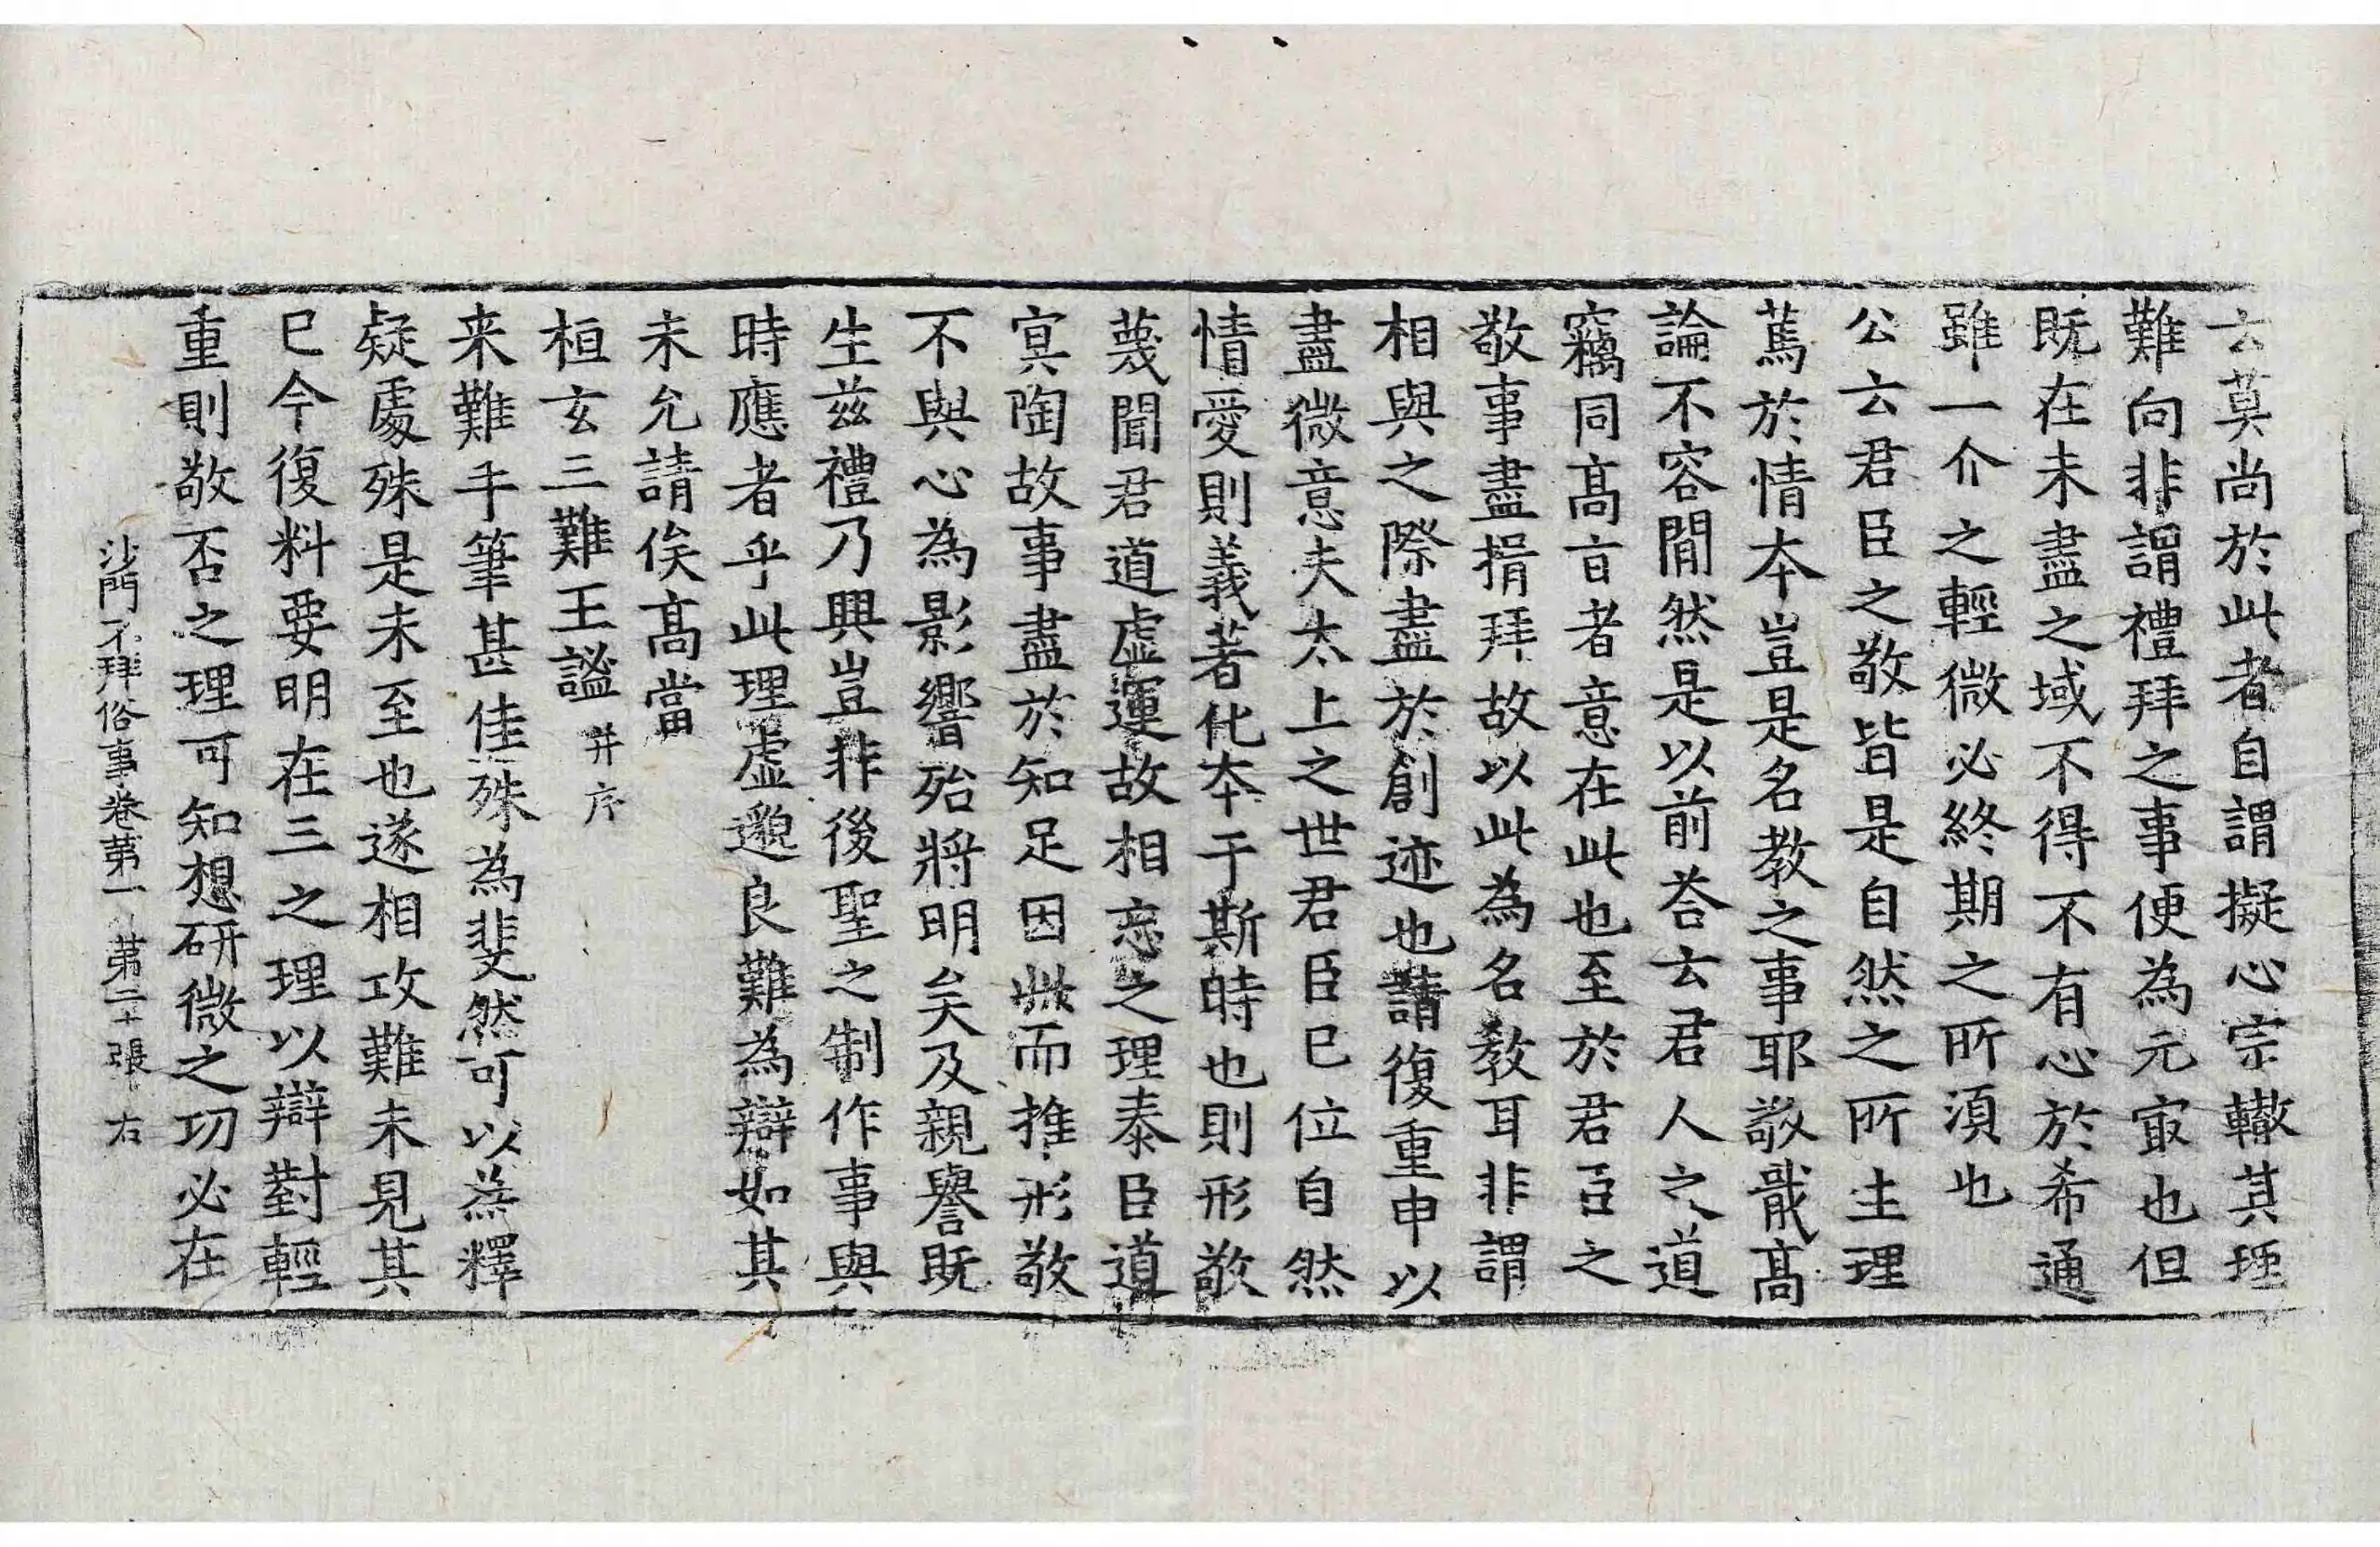 云莫尚於此者自謂擬心宗轍其理
難向非謂禮拜之事便為元㝡也但
既在未盡之域不得不有心於希通
雖一介之輕微必終期之所湏也
公云君臣之敬皆是自然之所生理
篤於情本豈是名教之事耶敬戢髙
論不容間然是以前荅云君人之道
竊同髙㫖者意在此也至於君臣之
敬事盡揖拜故以此為名教耳非謂
相與之際盡於創迹也請復重申以
盡微意夫太上之世君臣已位自然
情愛則義著化本于斯時也則形敬
蔑聞君道虛運故相忘之理泰臣道
㝠陶故事盡於知足因此而推形敬
不與心為影響殆將明矣及親譽既
生兹禮乃興豈非後聖之制作事與
時應者乎此理虛邈良難為辯如其
未允請俟髙當
桓玄三難王謐 并序
来難手筆甚佳殊為斐然可以為釋
疑處殊是未至也遂相攻難未見其
已今復料要明在三之理以辯對輕
重則敬否之理可知想研微之功必在
沙門不拜俗事卷第一 第二十張 右